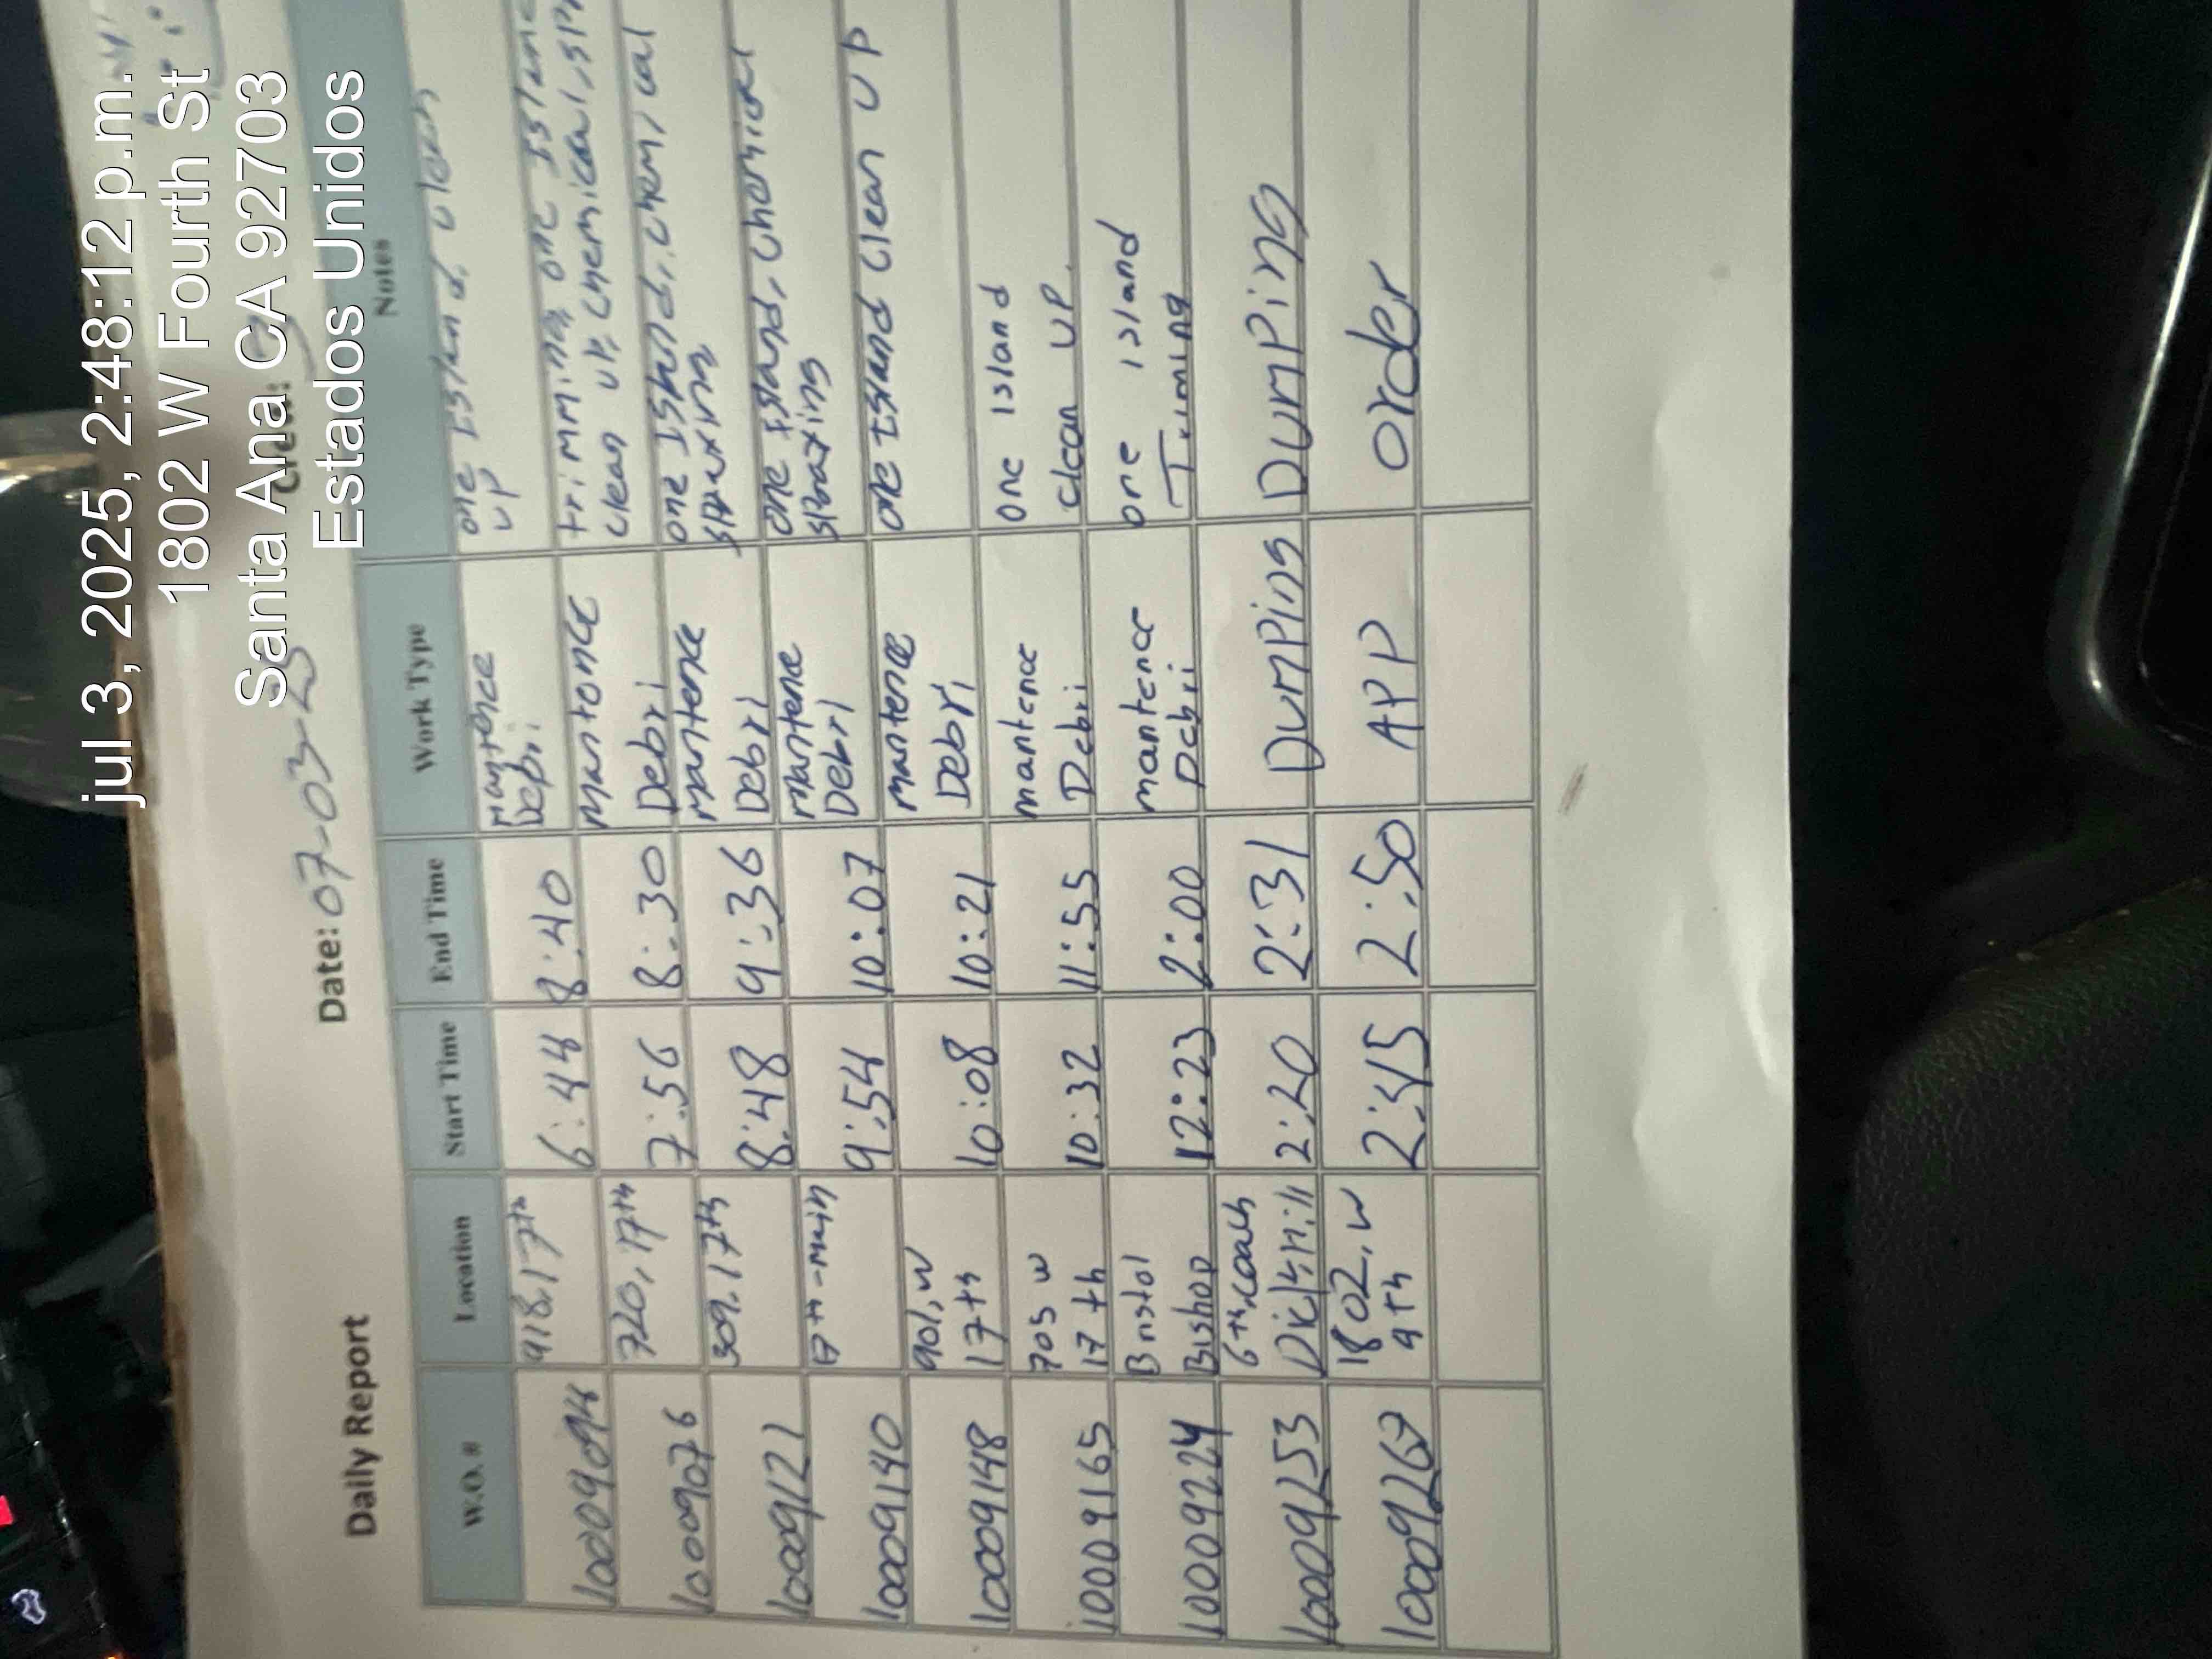 jul 3, 2025, 2:48:12 p.m.
1802 W Fourth St
Santa Ana CA 92703
Estados Unidos
Daily Report Date: 07-03-25 Crew:
W.O. # Location Start Time End Time Work Type Notes
100090 918.17th 6:44 8:40 mantence Debri one Island, clean
up
10009076 720,17th 7:56 8:30 mantence Debri trimming one Island
clean up, chemical, spr
10009121 509.17th 8:48 9:36 mantence Debri one Island, chemical
spraxing
10009140 17th-main 9:54 10:07 mantence Debri one Island, chemical
spraxing
10009148 901,w 17th 10:08 10:21 mantence Debri one Island clean up
10009165 705 w 17th 10:32 11:55 mantence Debri one island
clean up.
10009224 Bristol Bishop 12:23 2:00 mantence Debri one island
Triming
10009253 6th, 2:20 2:31 Dumping Dumping
10009267 1802.w 4th 2:45 2:50 APP order